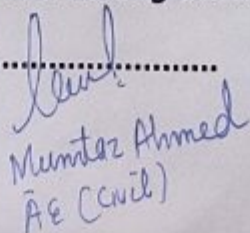 Mumtaz Ahmed
AE (Civil)